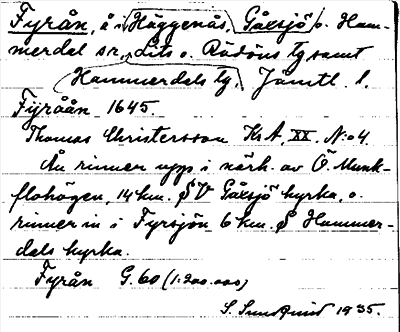 Fyrån, å i Häggenås, Gåxsjö o. Ham-
merdal sr, Lits o. Rödöns tg samt
Hammerdals tg, Jämtl. l.
Fÿråån 1645.
Thomas Christersson KrA. XX. N:o 4.
Ån rinner upp i närh. av Ö. Munk-
flohögen, 14 km. SV Gåxsjö kyrka, o.
rinner in i Fyrsjön 6 km. S Hammer-
dals kyrka.
Fyrån G. 60 (1:200.000)
S. Sundqvist 1935.